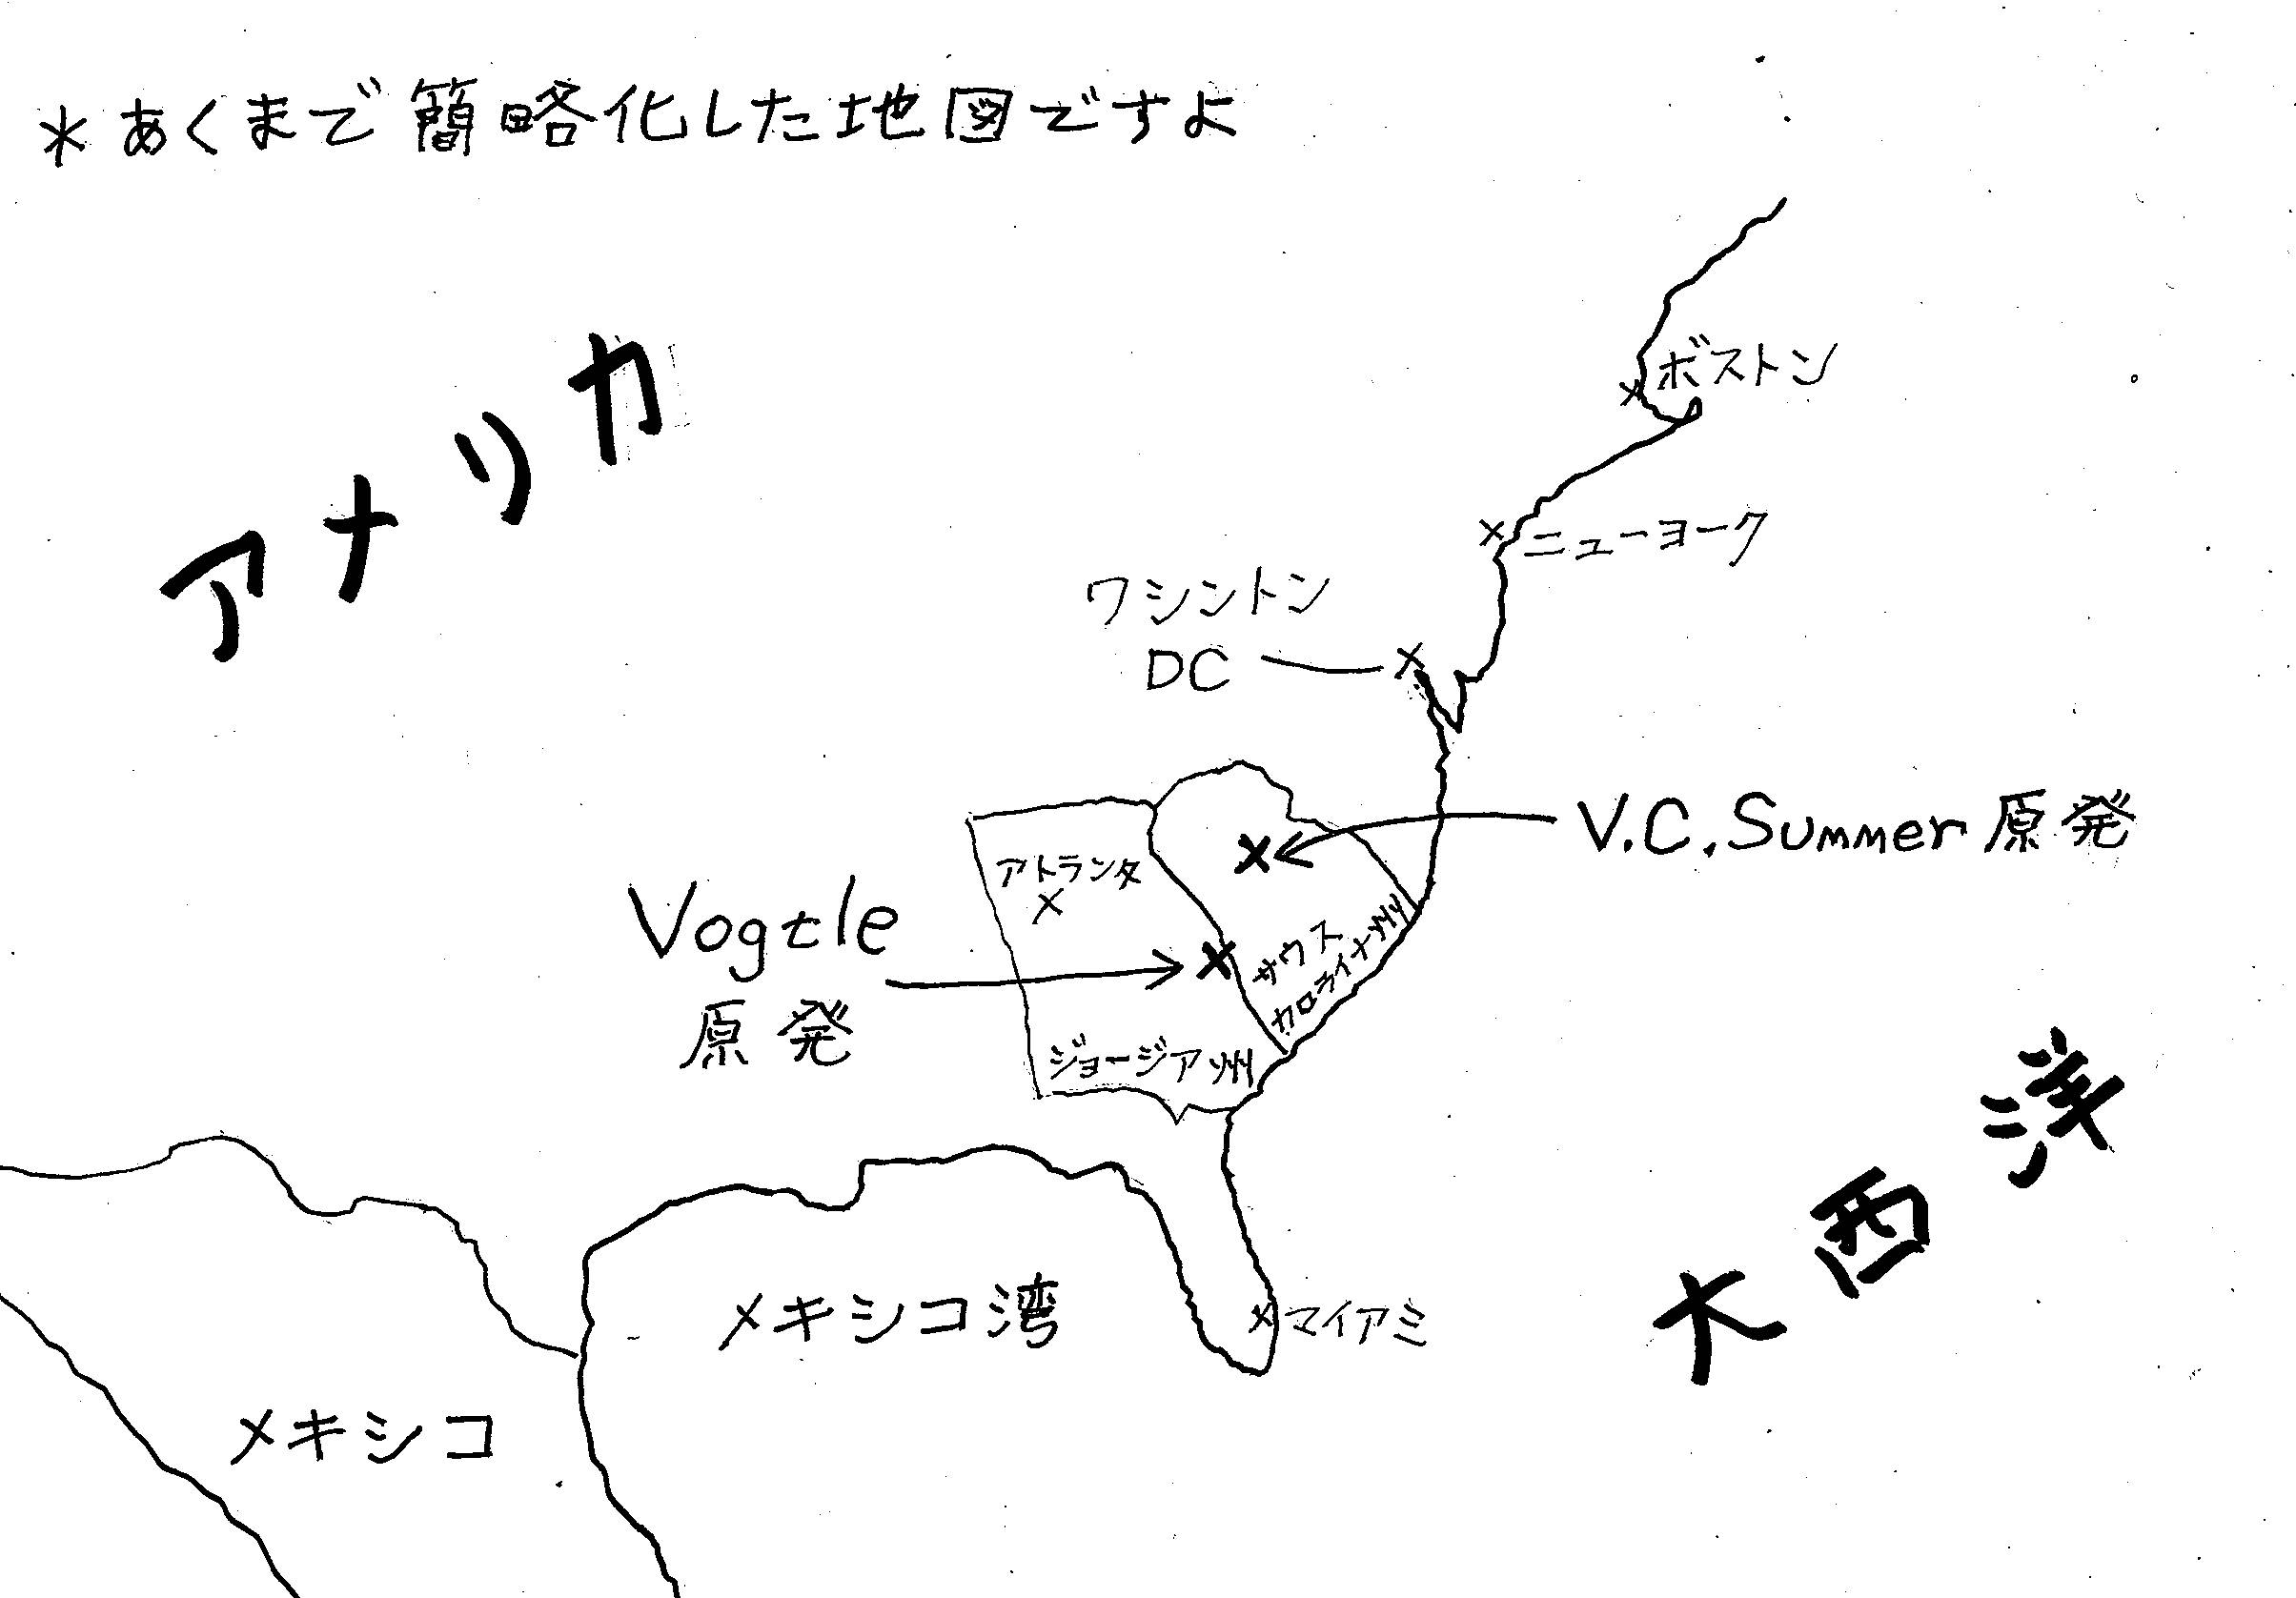 *あくまで簡略化した地図ですよ
アナリカ
ボストン
ニューヨーク
ワシントン
DC
V.C.Summer原発
アトランタ
Vogtle
原発
サウス
カロライナ州
ジョージア州
大西洋
メキシコ湾
マイアミ
メキシコ